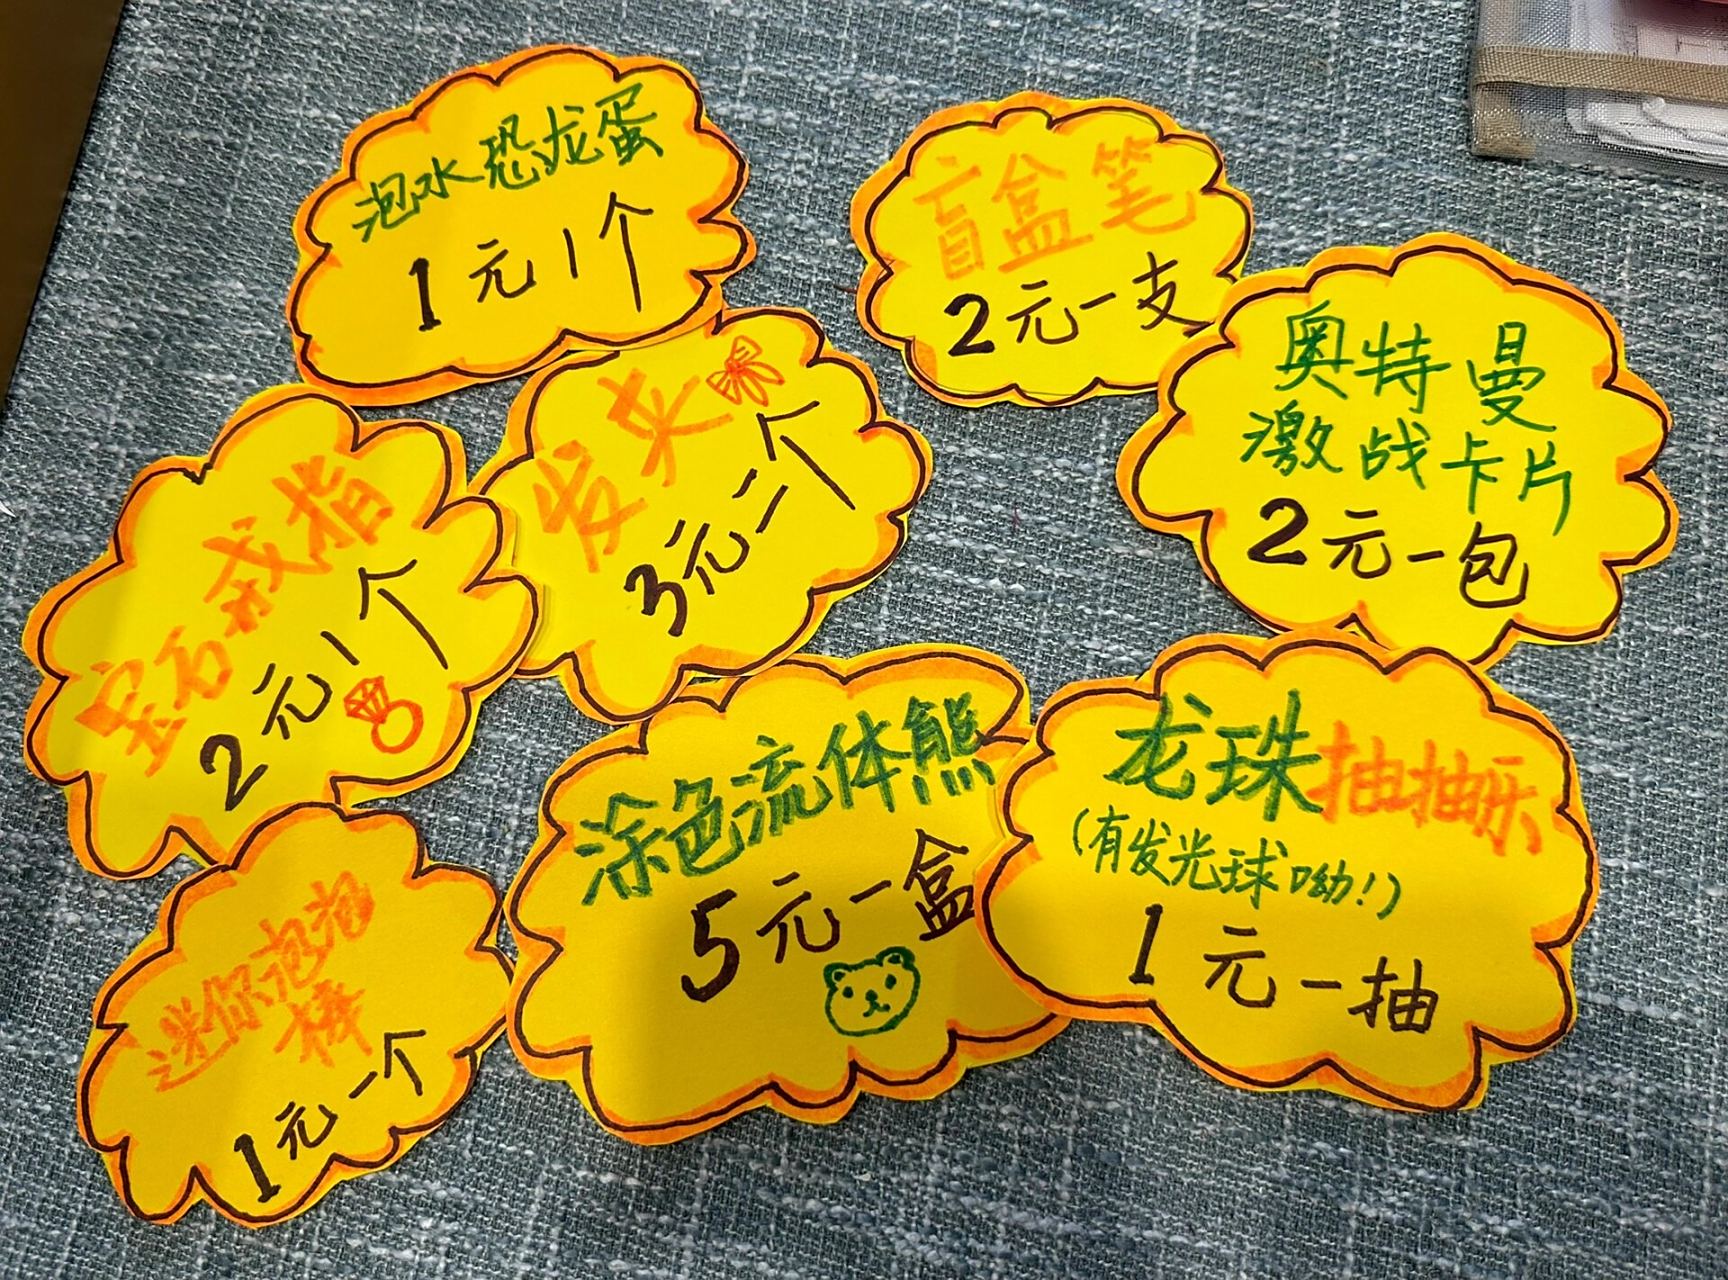 泡水恐龙蛋
1元1个
盲盒笔
2元一支
奥特曼
激战卡片
2元一包
发夹
3元二个
宝石戒指
2元1个
涂色流体熊
5元一盒
龙珠抽抽乐
(有发光球呦!)
1元一抽
迷你泡泡
棒
1元一个